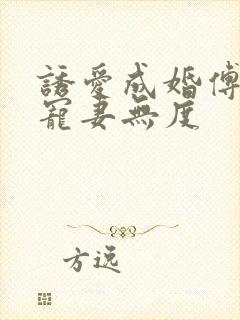 誘愛成婚傅
寵妻無度
方逸